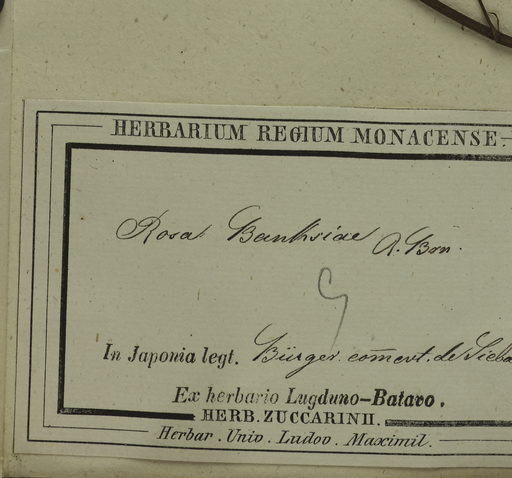 HERBARIUM REGIUM MONACENSE.
Rosa Banksiae R. Brn.
In Japonia legt. Bürger. com̄ert. de Siebo
Ex herbario Lugduno-Batavo.
HERB. ZUCCARINII.
Herbar. Univ. Ludov. Maximil.